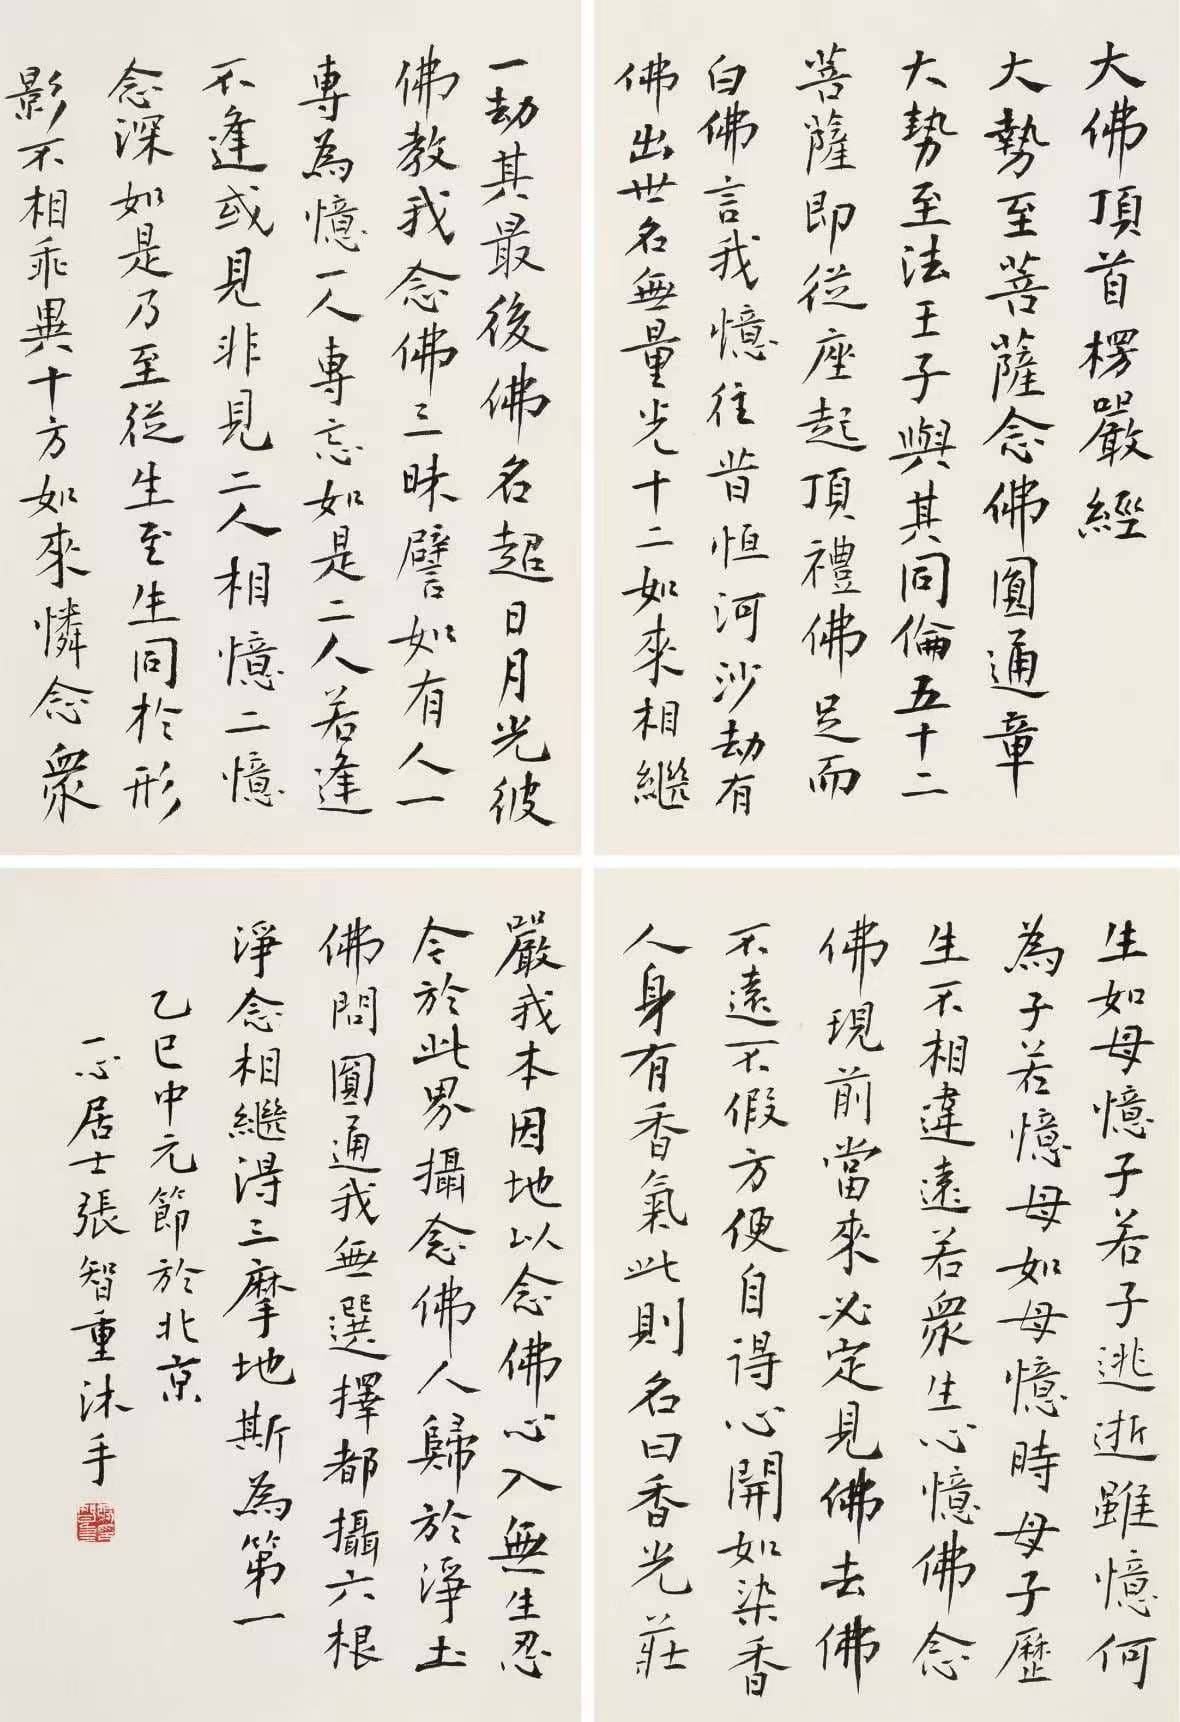 大佛頂首楞嚴經
大勢至菩薩念佛圓通章
大勢至法王子與其同倫五十二
菩薩即從座起頂禮佛足而
白佛言我憶往昔恒河沙劫有
佛出世名無量光十二如來相繼
一劫其最後佛名超日月光彼
佛教我念佛三昧譬如有人一
專為憶一人專忘如是二人若逢
不逢或見非見二人相憶二憶
念深如是乃至從生至生同於形
影不相乖異十方如來憐念眾
生如母憶子若子逃逝雖憶何
為子若憶母如母憶時母子歷
生不相違遠若眾生心憶佛念
佛現前當來必定見佛去佛
不遠不假方便自得心開如染香
人身有香氣此則名曰香光莊
嚴我本因地以念佛心入無生忍
今於此界攝念佛人歸於淨土
佛問圓通我無選擇都攝六根
淨念相繼得三摩地斯為第一
乙巳中元節於北京
一心居士張智重沐手